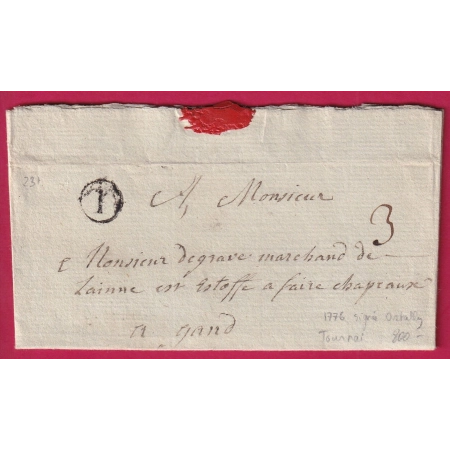 231
T
A Monsieur
3
Monsieur degrave marchand de
Lainne est Estoffe a faire chapeaux
a gand
1776 signé
Tournai 800 -